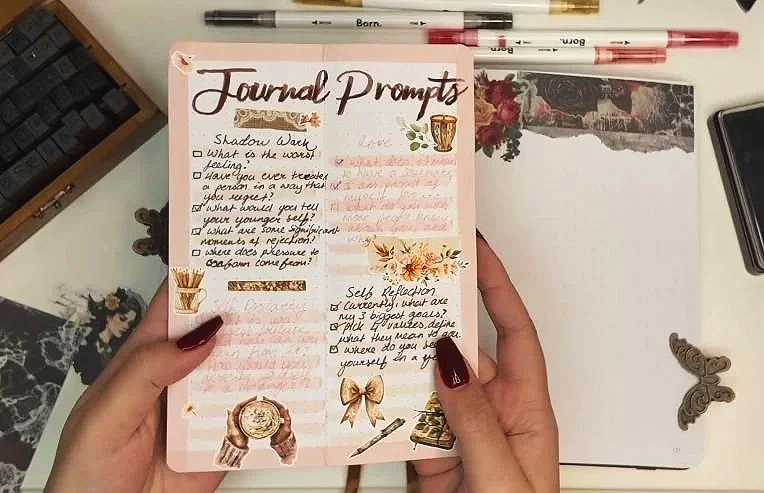 Born.
Born.
Born.
Journal Prompts
Shadow Work
What is the worst
feeling?
Have you ever treated
a person in a way that
you regret?
What would you tell
your younger self?
What are some significant
moments of rejection?
Where does pressure to
conform come from?
Self Discovery
Love
What does it mean
to have a soulmate?
I am proud of
myself
What do you wish
more people knew
about you, and
why?
Self Reflection
Currently, what are
my 3 biggest goals?
Pick 4 values, define
what they mean to you.
Where do you
yourself in a